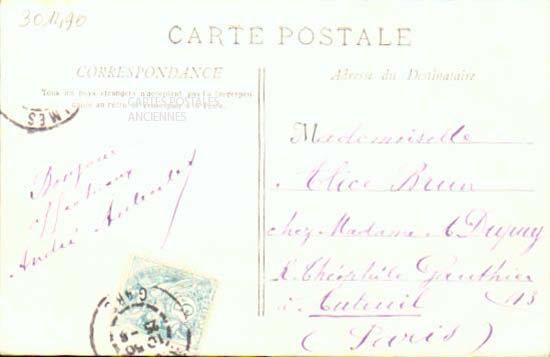 301490
CARTE POSTALE
CORRESPONDANCE
Tous les pays étrangers n'acceptent pas la correspon-
dance au recto
CARTES POSTALES
ANCIENNES
Adresse du Destinataire
MES
Bonjour
affectueux
André
GARD
Mademoiselle
Alice Brun
chez Madame A. Dupuy
R. Théophile Gauthier
à Auteuil 43
(Paris)